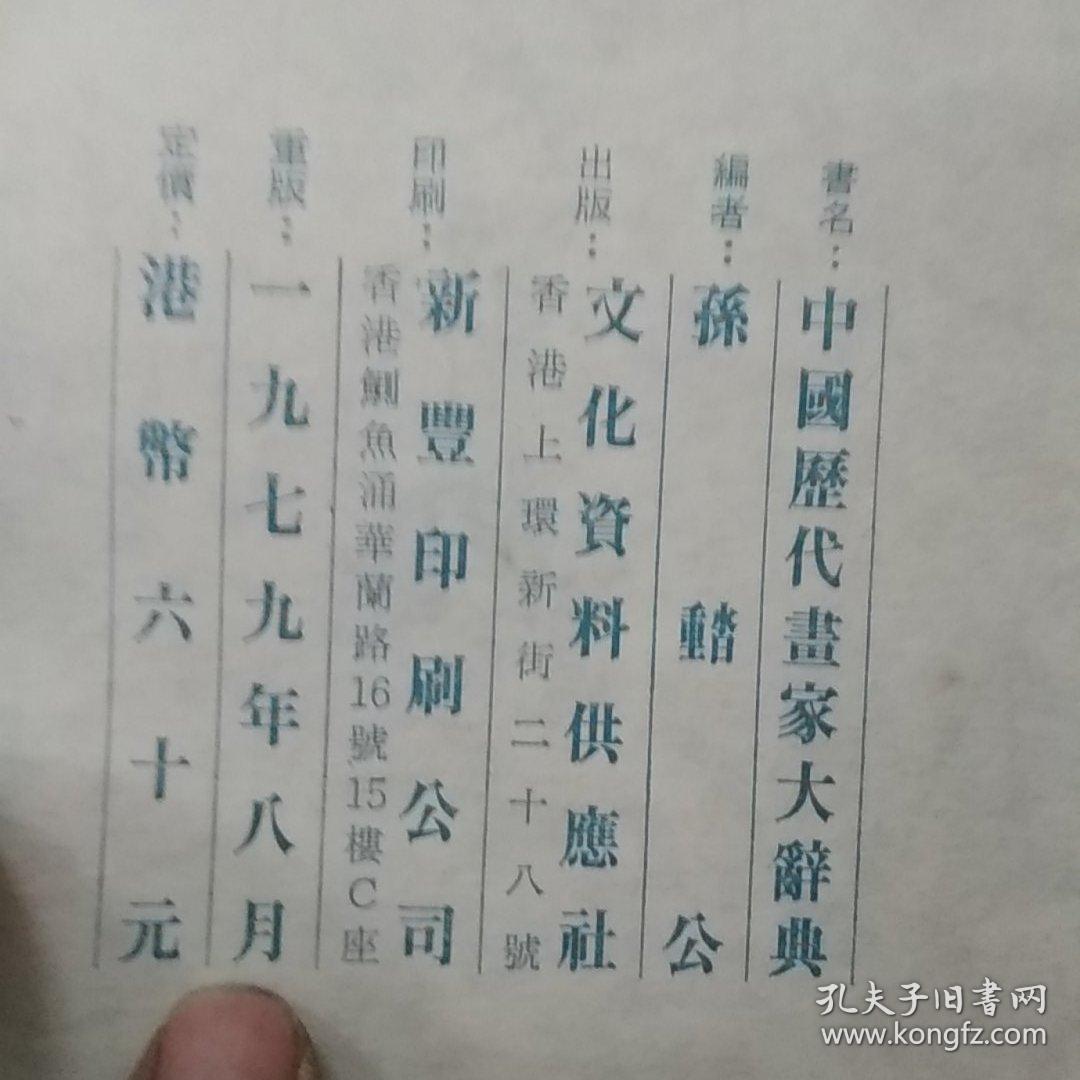 書名：中國歷代畫家大辭典
編者：孫 公
出版：文化資料供應社
香港上環新街二十八號
印刷：新豐印刷公司
香港鰂魚涌華蘭路16號15樓C座
重版：一九七九年八月
定價：港幣六十元
孔夫子旧書网
www.kongfz.com